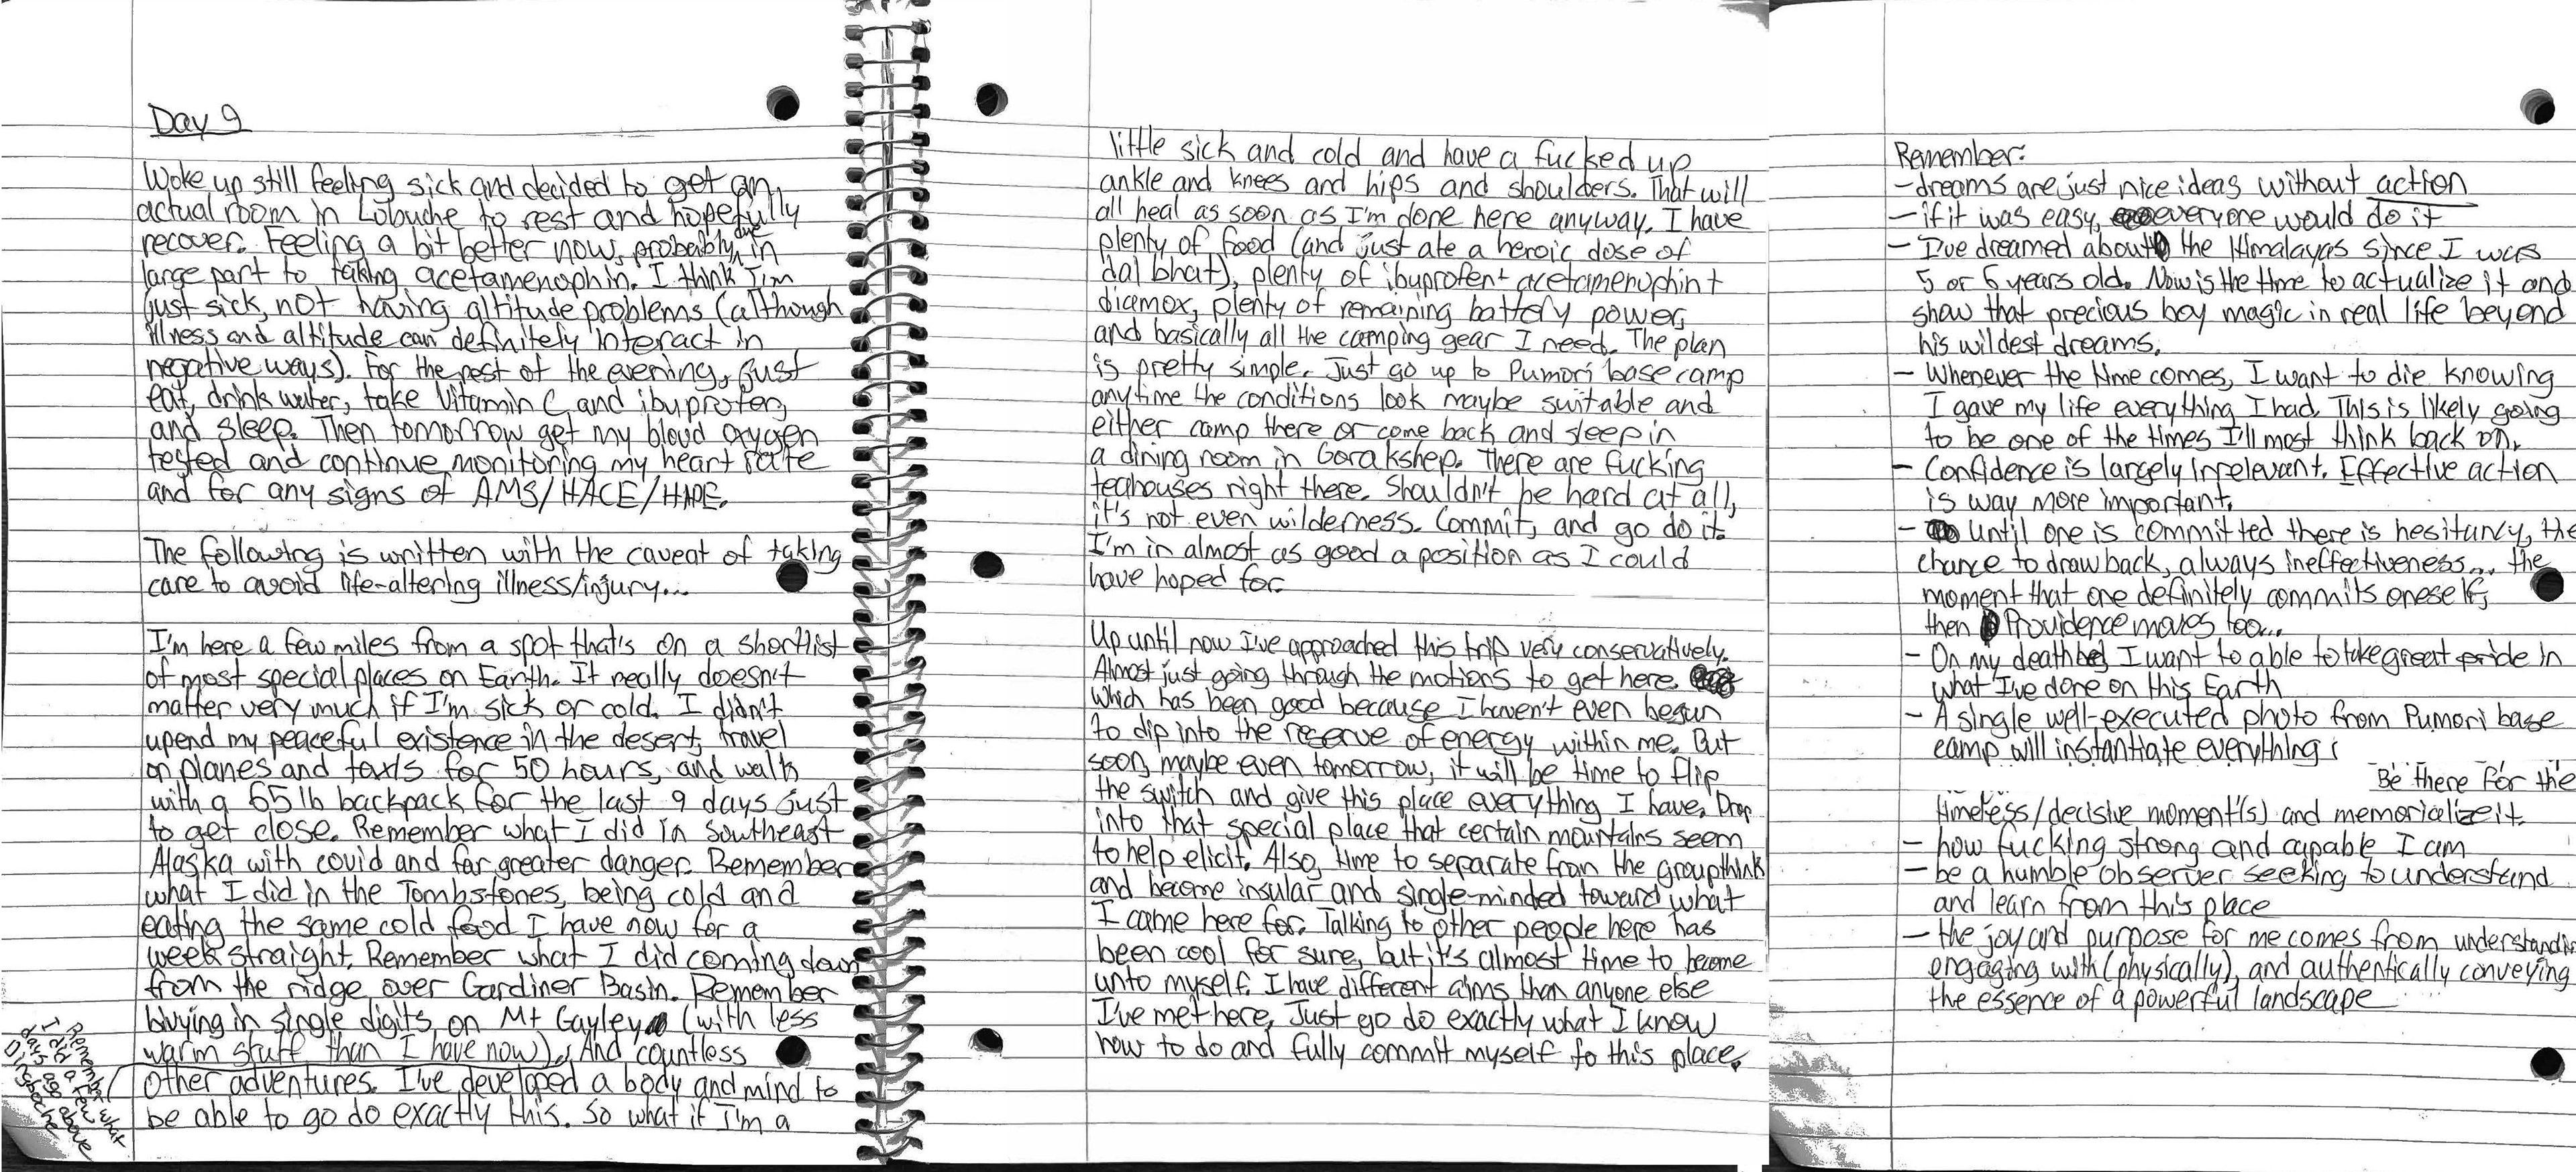 Day 9
Woke up still feeling sick and decided to get an
actual room in Lobuche to rest and hopefully
recover. Feeling a bit better now, probably due in
large part to taking acetamenophin. I think I'm
just sick, not having altitude problems (although
illness and altitude can definitely interact in
negative ways). For the rest of the evening, just
eat, drink water, take Vitamin C, and ibuprofen,
and sleep. Then tomorrow get my blood oxygen
tested and continue monitoring my heart rate
and for any signs of AMS/HACE/HAPE.
The following is written with the caveat of taking
care to avoid life-altering illness/injury...
I'm here a few miles from a spot that's on a shortlist
of most special places on Earth. It really doesn't
matter very much if I'm sick or cold. I didn't
upend my peaceful existence in the desert, travel
on planes and taxis for 50 hours, and walk
with a 65 lb backpack for the last 9 days just
to get close. Remember what I did in Southeast
Alaska with covid and far greater danger. Remember
what I did in the Tombstones, being cold and
eating the same cold food I have now for a
week straight. Remember what I did coming down
from the ridge over Gardiner Basin. Remember
bivying in single digits on Mt Gayley (with less
warm stuff than I have now). And countless
other adventures. I've developed a body and mind to
be able to go do exactly this. So what if I'm a
Remember what
I did a few
days ago above
Dingboche
little sick and cold and have a fucked up
ankle and knees and hips and shoulders. That will
all heal as soon as I'm done here anyway. I have
plenty of food (and just ate a heroic dose of
dal bhat), plenty of ibuprofen + acetamenophin +
diamox, plenty of remaining battery power,
and basically all the camping gear I need. The plan
is pretty simple. Just go up to Pumori base camp
anytime the conditions look maybe suitable and
either camp there or come back and sleep in
a dining room in Gorakshep. There are fucking
teahouses right there. Shouldn't be hard at all,
it's not even wilderness. Commit, and go do it.
I'm in almost as good a position as I could
have hoped for.
Up until now I've approached this trip very conservatively.
Almost just going through the motions to get here.
Which has been good because I haven't even begun
to dip into the reserve of energy within me. But
soon, maybe even tomorrow, it will be time to flip
the switch and give this place everything I have. Drop
into that special place that certain mountains seem
to help elicit. Also, time to separate from the groupthink
and become insular and single-minded toward what
I came here for. Talking to other people here has
been cool for sure, but it's almost time to become
unto myself. I have different aims than anyone else
I've met here. Just go do exactly what I know
how to do and fully commit myself to this place.
Remember:
- dreams are just nice ideas without action
- if it was easy, everyone would do it
- I've dreamed about the Himalayas since I was
5 or 6 years old. Now is the time to actualize it and
show that precious boy magic in real life beyond
his wildest dreams.
- Whenever the time comes, I want to die knowing
I gave my life everything I had. This is likely going
to be one of the times I'll most think back on.
- Confidence is largely irrelevant. Effective action
is way more important.
- Until one is committed there is hesitancy, the
chance to draw back, always ineffectiveness... the
moment that one definitely commits oneself,
then Providence moves too...
- On my deathbed I want to able to take great pride in
what I've done on this Earth
- A single well-executed photo from Pumori base
camp will instantiate everything
Be there for the
timeless/decisive moment(s) and memorialize it.
- how fucking strong and capable I am
- be a humble observer seeking to understand
and learn from this place
- the joy and purpose for me comes from understandin
engaging with (physically), and authentically conveying
the essence of a powerful landscape